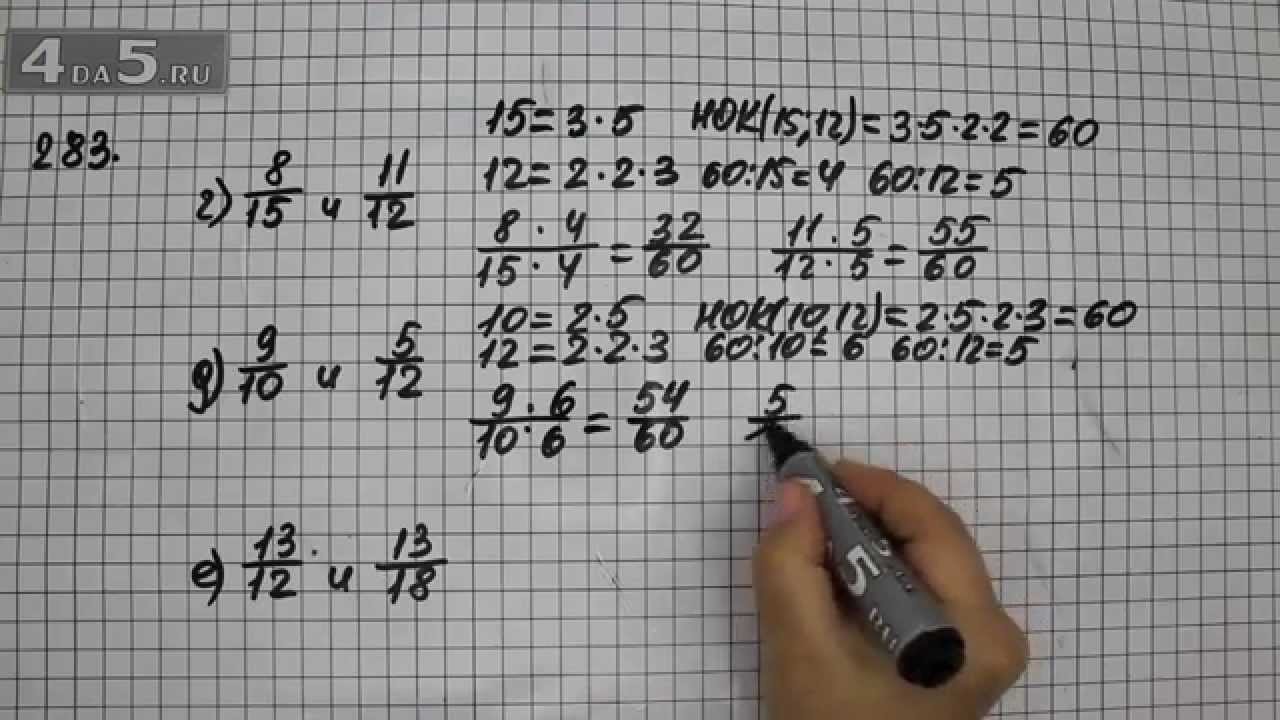 4DA5.RU
283.
г) 8/15 и 11/12
15 = 3 · 5 НОК(15; 12) = 3 · 5 · 2 · 2 = 60
12 = 2 · 2 · 3 60 : 15 = 4 60 : 12 = 5
8 · 4 / 15 · 4 = 32/60 11 · 5 / 12 · 5 = 55/60
д) 9/10 и 5/12
10 = 2 · 5 НОК(10, 12) = 2 · 5 · 2 · 3 = 60
12 = 2 · 2 · 3 60 : 10 = 6 60 : 12 = 5
9 · 6 / 10 · 6 = 54/60 5/
е) 13/12 и 13/18
5